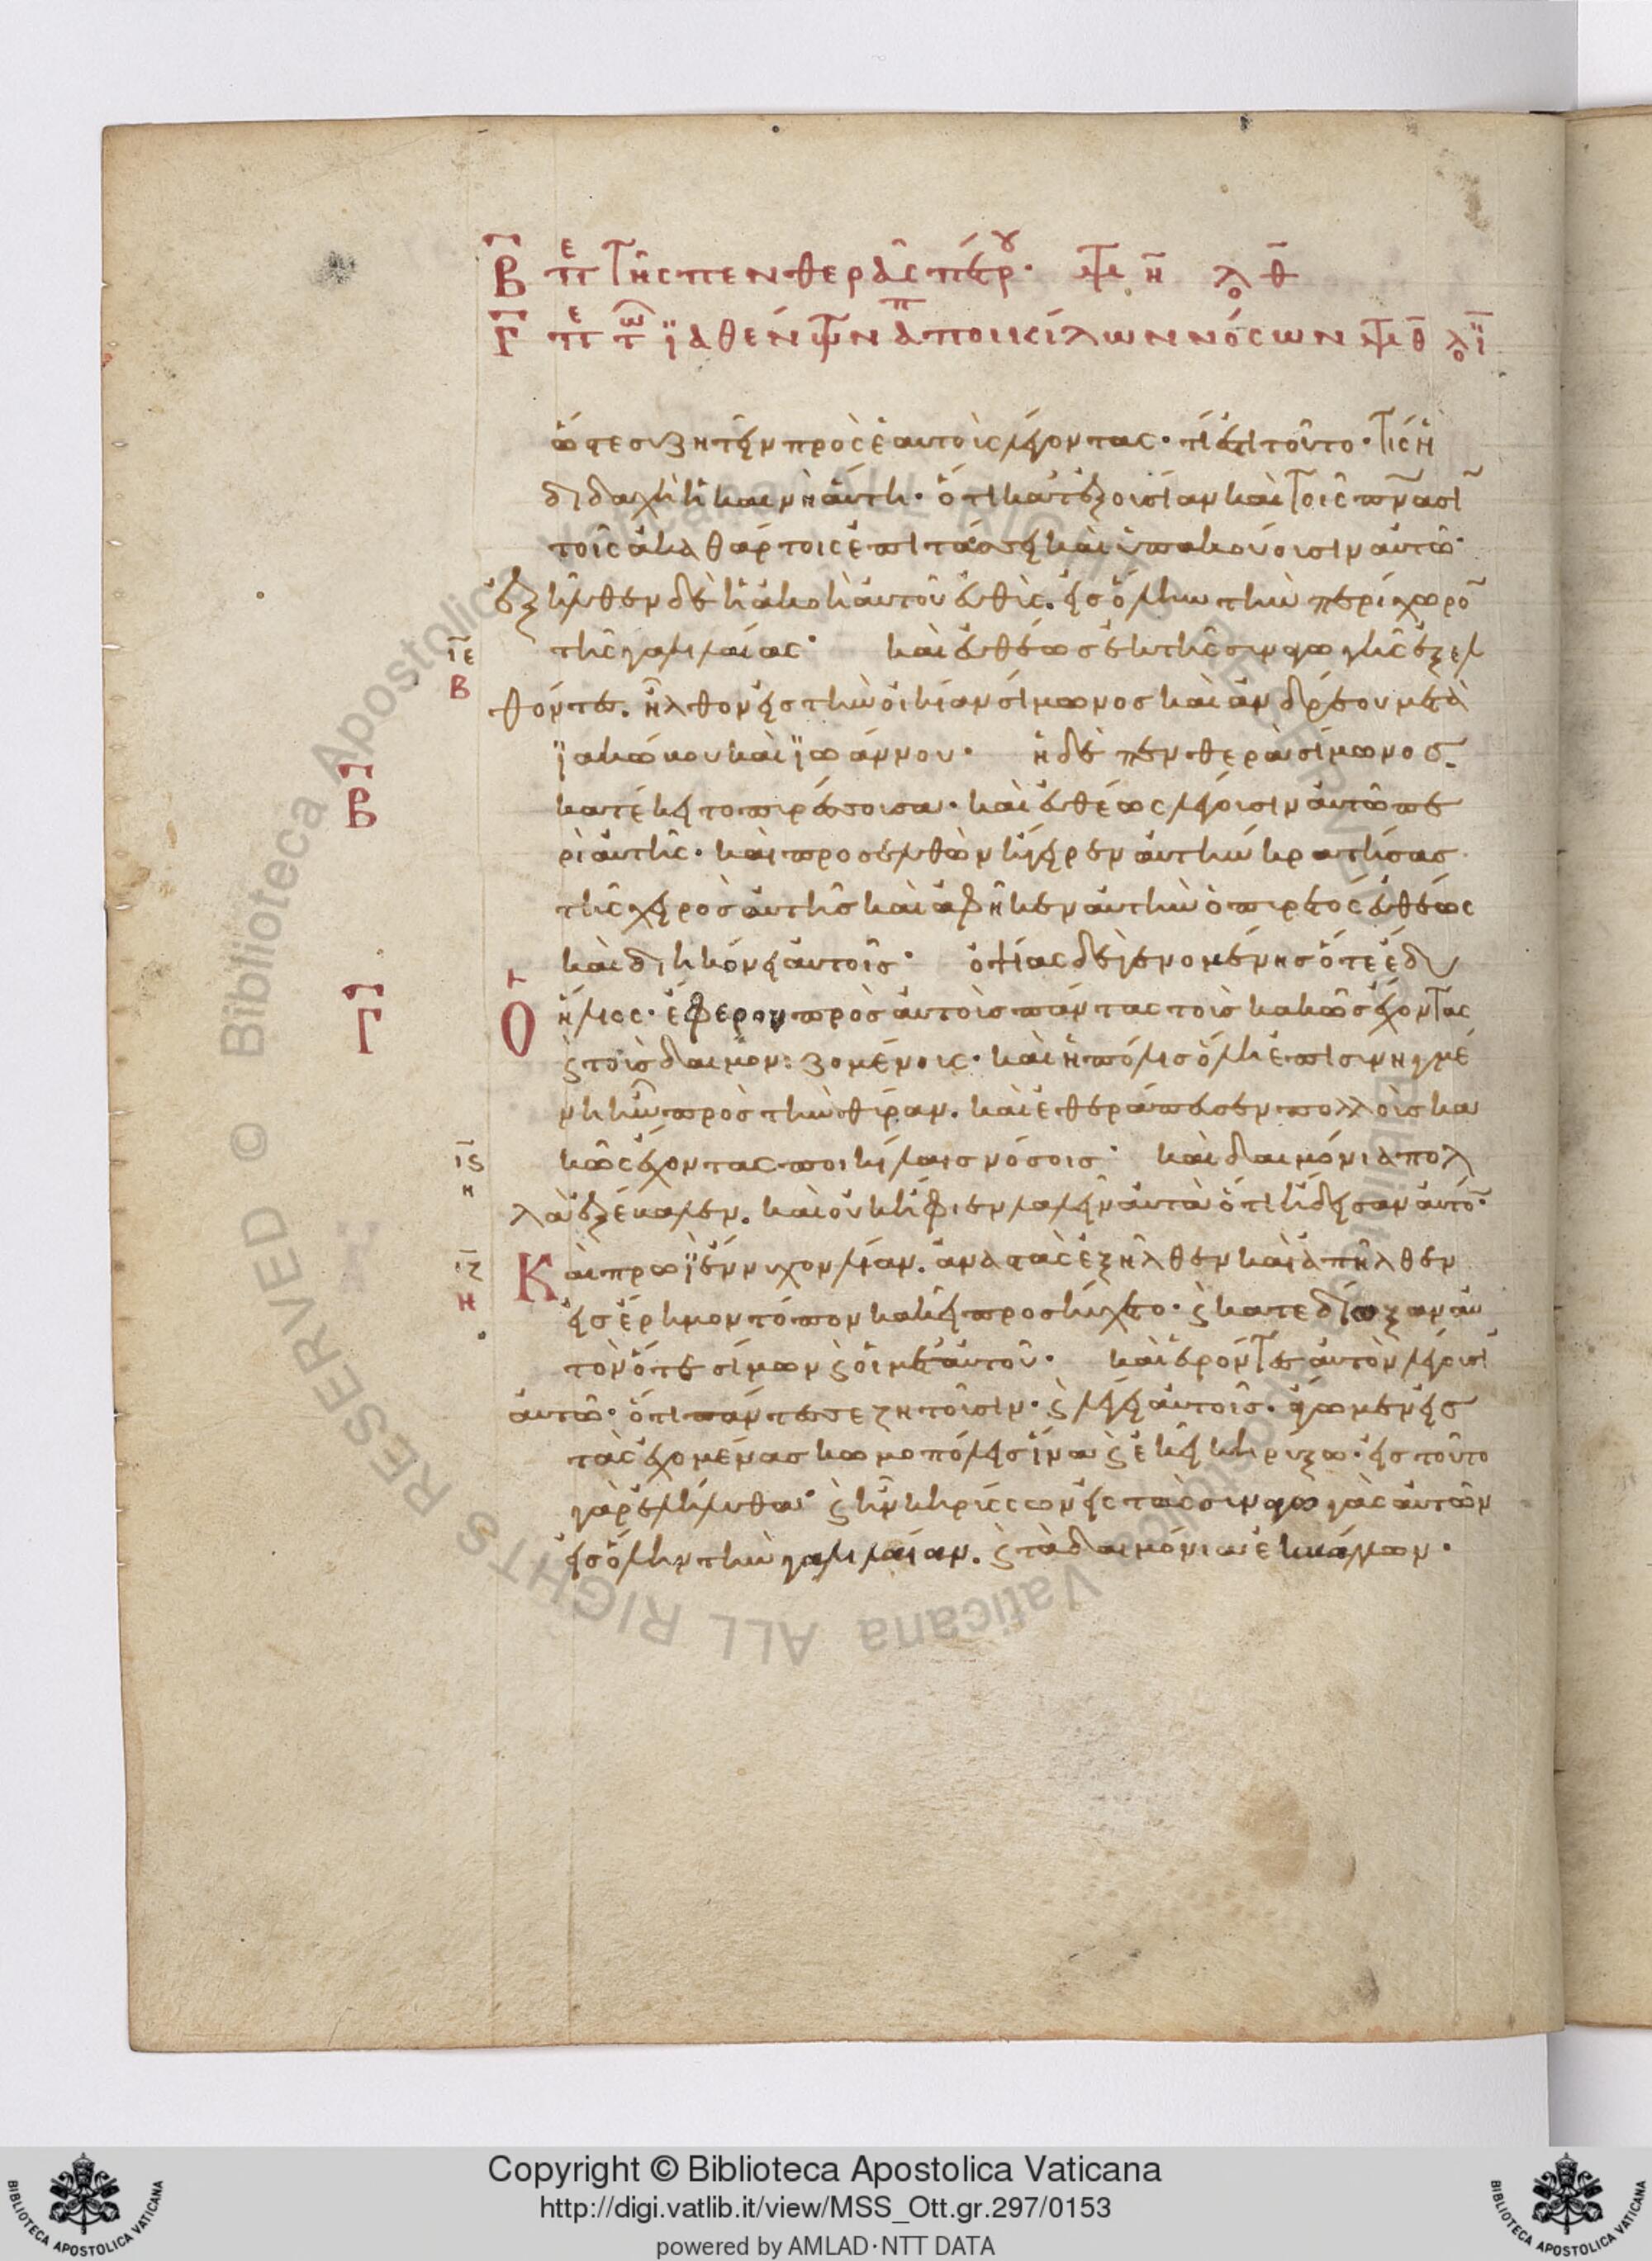 Β πε Τῆς πενθερᾶς πέτρου· Ματ η λο θ
Γ πε τῶ ϊαθέντων ἀπ ποικίλων νόσων Ματ θ λο ϊ
ὥστε συζητεῖν πρὸς ἑαυτοὺς λέγοντας· τί ἐστι τοῦτο· Τίς ἡ
διδαχὴ ἡ καινὴ αὕτη· ὅτι κατ' ἐξουσίαν καὶ τοῖς πν̅ασι
τοῖς ἀκαθάρτοις ἐπιτάσσει καὶ ὑπακούουσιν αὐτῶ·
ἐξῆλθεν δὲ ἡ ἀκοὴ αὐτοῦ εὐθὺς. εἰς ὅλην τὴν περίχωρο̅
τῆς γαλιλαίας· καὶ εὐθέως ἐκ τῆς συναγωγῆς ἐξελ
ιε
Β
θόντες. ἦλθον εἰς τὴν οἰκίαν σίμωνος καὶ ἀνδρέου μετὰ
ϊακώβου καὶ ϊωάννου· ἡ δὲ πενθερὰ σίμωνος.
Β
κατέκειτο πυρέσσουσα· καὶ εὐθέως λέγουσιν αὐτῶ πε
ρὶ αὐτῆς· καὶ προσελθὼν ἤγειρεν αὐτὴν κρατήσας
τῆς χειρὸς αὐτῆς καὶ ἀφῆκεν αὐτὴν ὁ πυρετός εὐθέως
καὶ διηκόνει αὐτοῖς· ὀψίας δὲ γενομένης ὅτε ἔδυ
Γ
Ὁ ἥλιος· ἔφερον πρὸς αὐτοὺς πάντας τοὺς κακῶς ἔχοντας
ϛ τοὺς δαιμονιζομένους· καὶ ἡ πόλις ὅλη ἐπισυνηγμέ
νη ἦν πρὸς τὴν θύραν. καὶ ἐθεράπευσεν πολλοὺς κα
ιϛ
η
κῶς ἔχοντας ποικίλαις νόσοις· καὶ δαιμόνια πολ
λὰ ἐξέβαλεν. καὶ οὐκ ἤφιεν λαλεῖν αὐτὰ ὅτι ἤδεισαν αὐτό̅·
ιζ
η
Καὶ πρωῒ ἔννυχον λίαν. ἀναστὰς ἐξῆλθεν καὶ ἀπῆλθεν
εἰς ἔρημον τόπον κακεῖ προσηύχετο· ϛ κατεδίωξαν αὐ
τὸν ὅτε σίμων ϛ οἱ μετ' αὐτοῦ· καὶ εὑρόντες αὐτὸν λέγουσι
αὐτῶ· ὅτι πάντες σε ζητοῦσιν· ϛ λέγει αὐτοῖς· ἄγωμεν εἰς
τὰς ἐχομένας κωμοπόλεις ἵνα ϛ ἐκεῖ κηρύξω· εἰς τοῦτο
γὰρ ἐλήλυθα· ϛ ἦν κηρύσσων εἰς τὰς συναγωγὰς αὐτῶν
εἰς ὅλην τὴν γαλιλαίαν. ϛ τὰ δαιμόνια ἐκβάλλων·
Copyright © Biblioteca Apostolica Vaticana
http://digi.vatlib.it/view/MSS_Ott.gr.297/0153
powered by AMLAD·NTT DATA
BIBLIOTECA APOSTOLICA VATICANA
BIBLIOTECA APOSTOLICA VATICANA
© Biblioteca Apostolica Vaticana ALL RIGHTS RESERVED